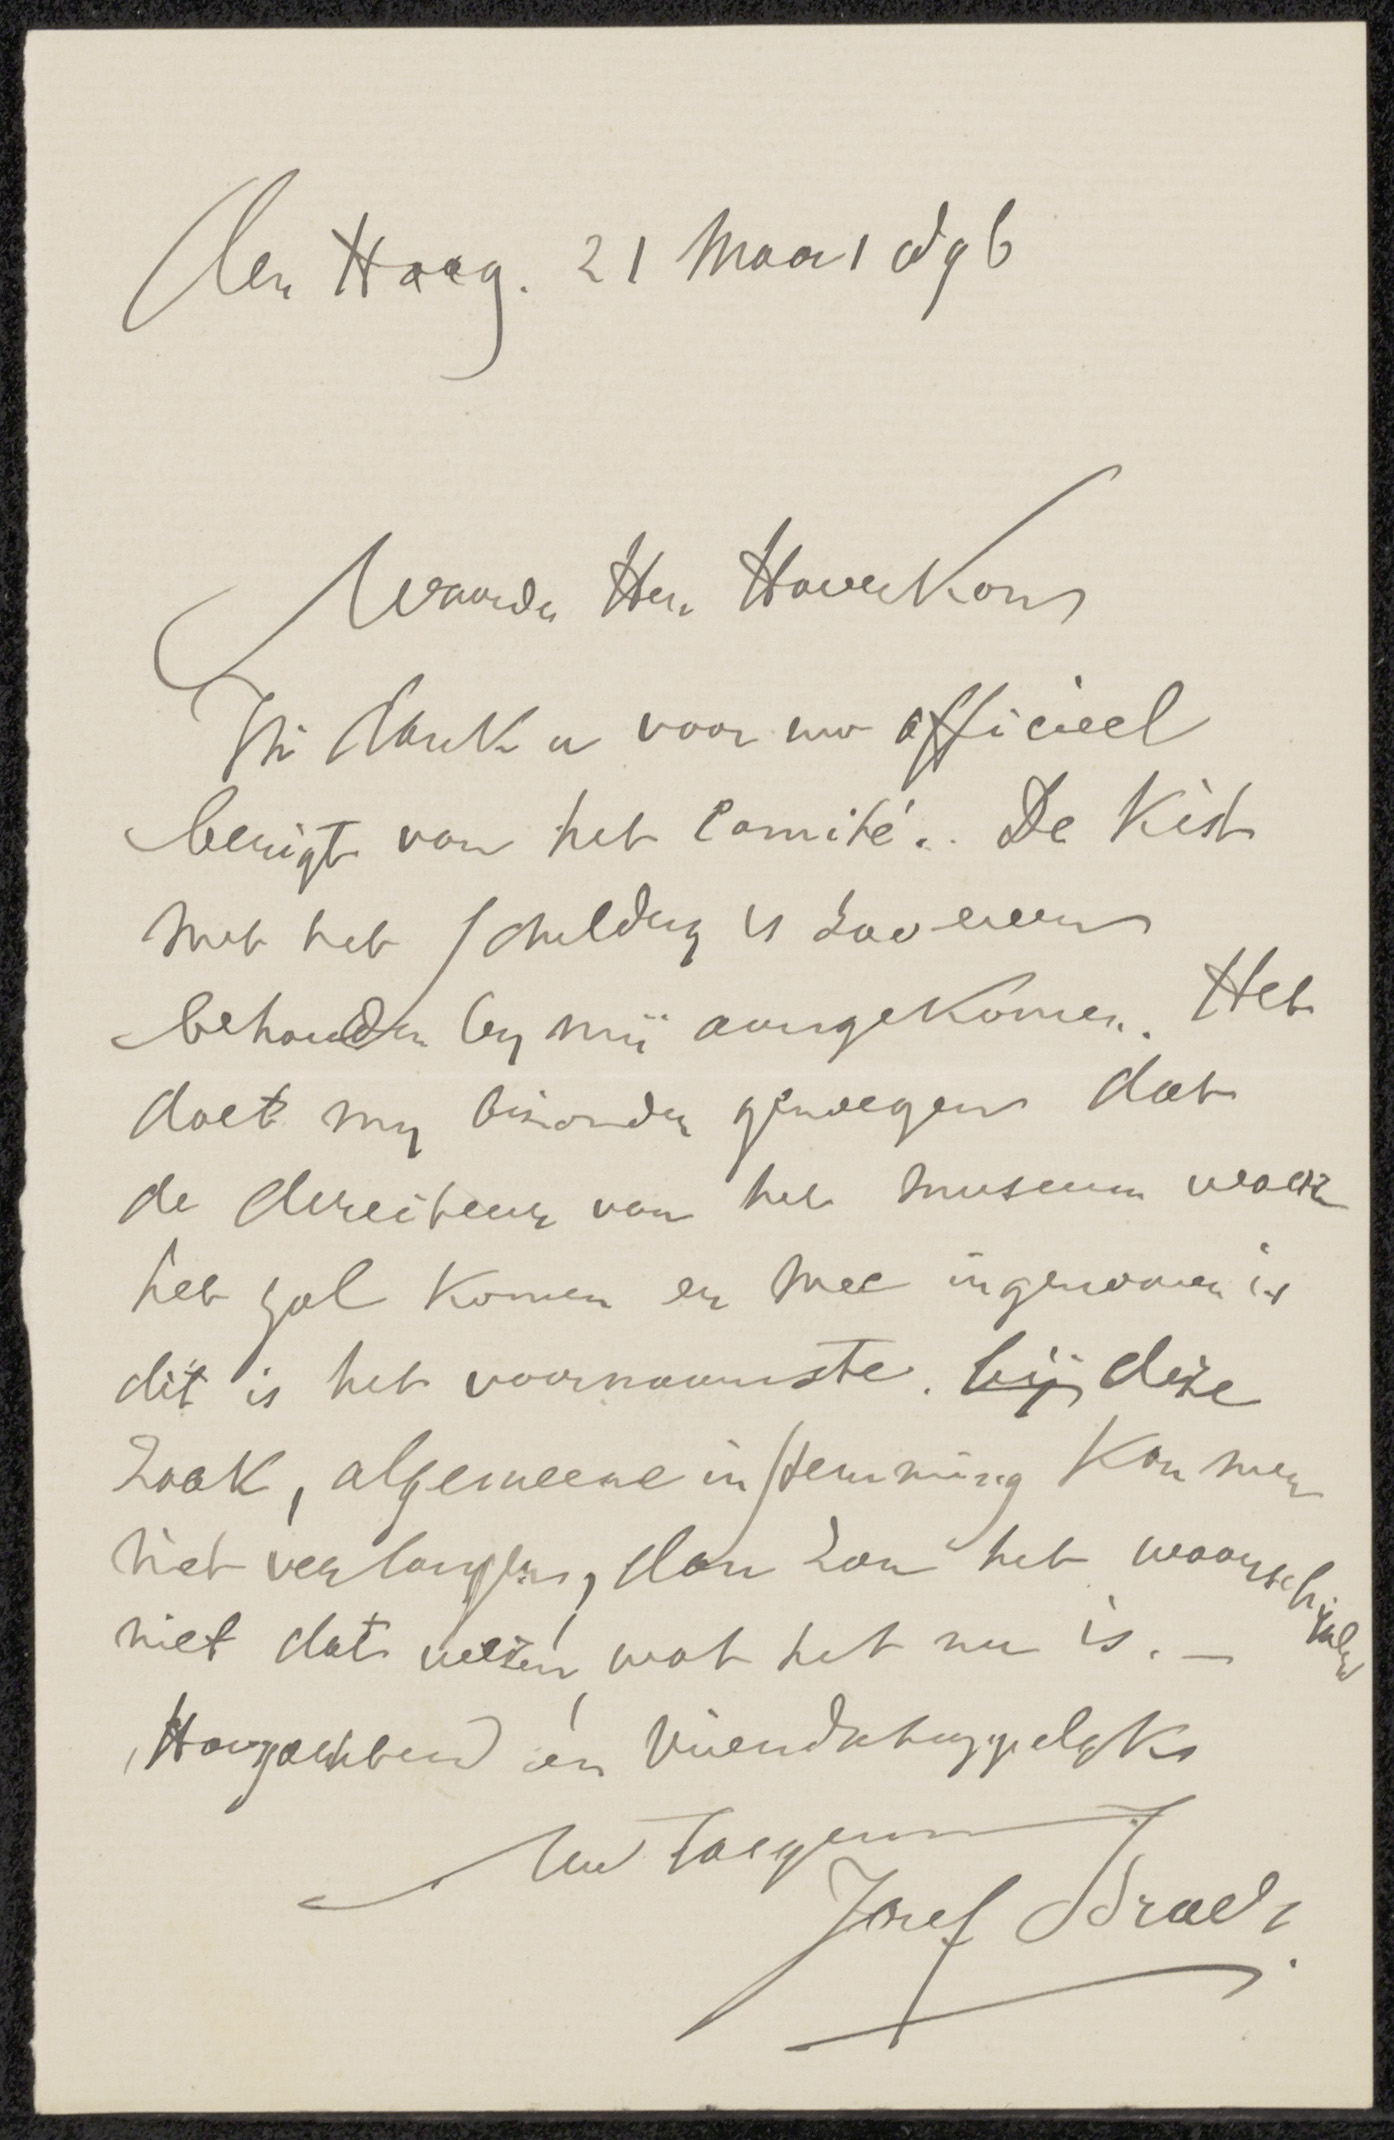 Den Haag. 21 Maart 96
Waarde Heer Haverkorn
Ik dank u voor uw officieel
berigt van het Comité. De Kist
met het schilderij is zoo even
behouden by mij aangekomen. Het
doet my bizonder genoegen dat
de directeur van het museum waar
het zal komen er mee ingenomen is
dit is het voornaamste. bij deze
zaak, algemeene instemming kan men
niet verlangen, dan zou het waarschijnlyk
niet dat wezen, wat het nu is. —
Hoogachtend en Vriendschappelyk
Uw Toegen
Jozef Israëls.